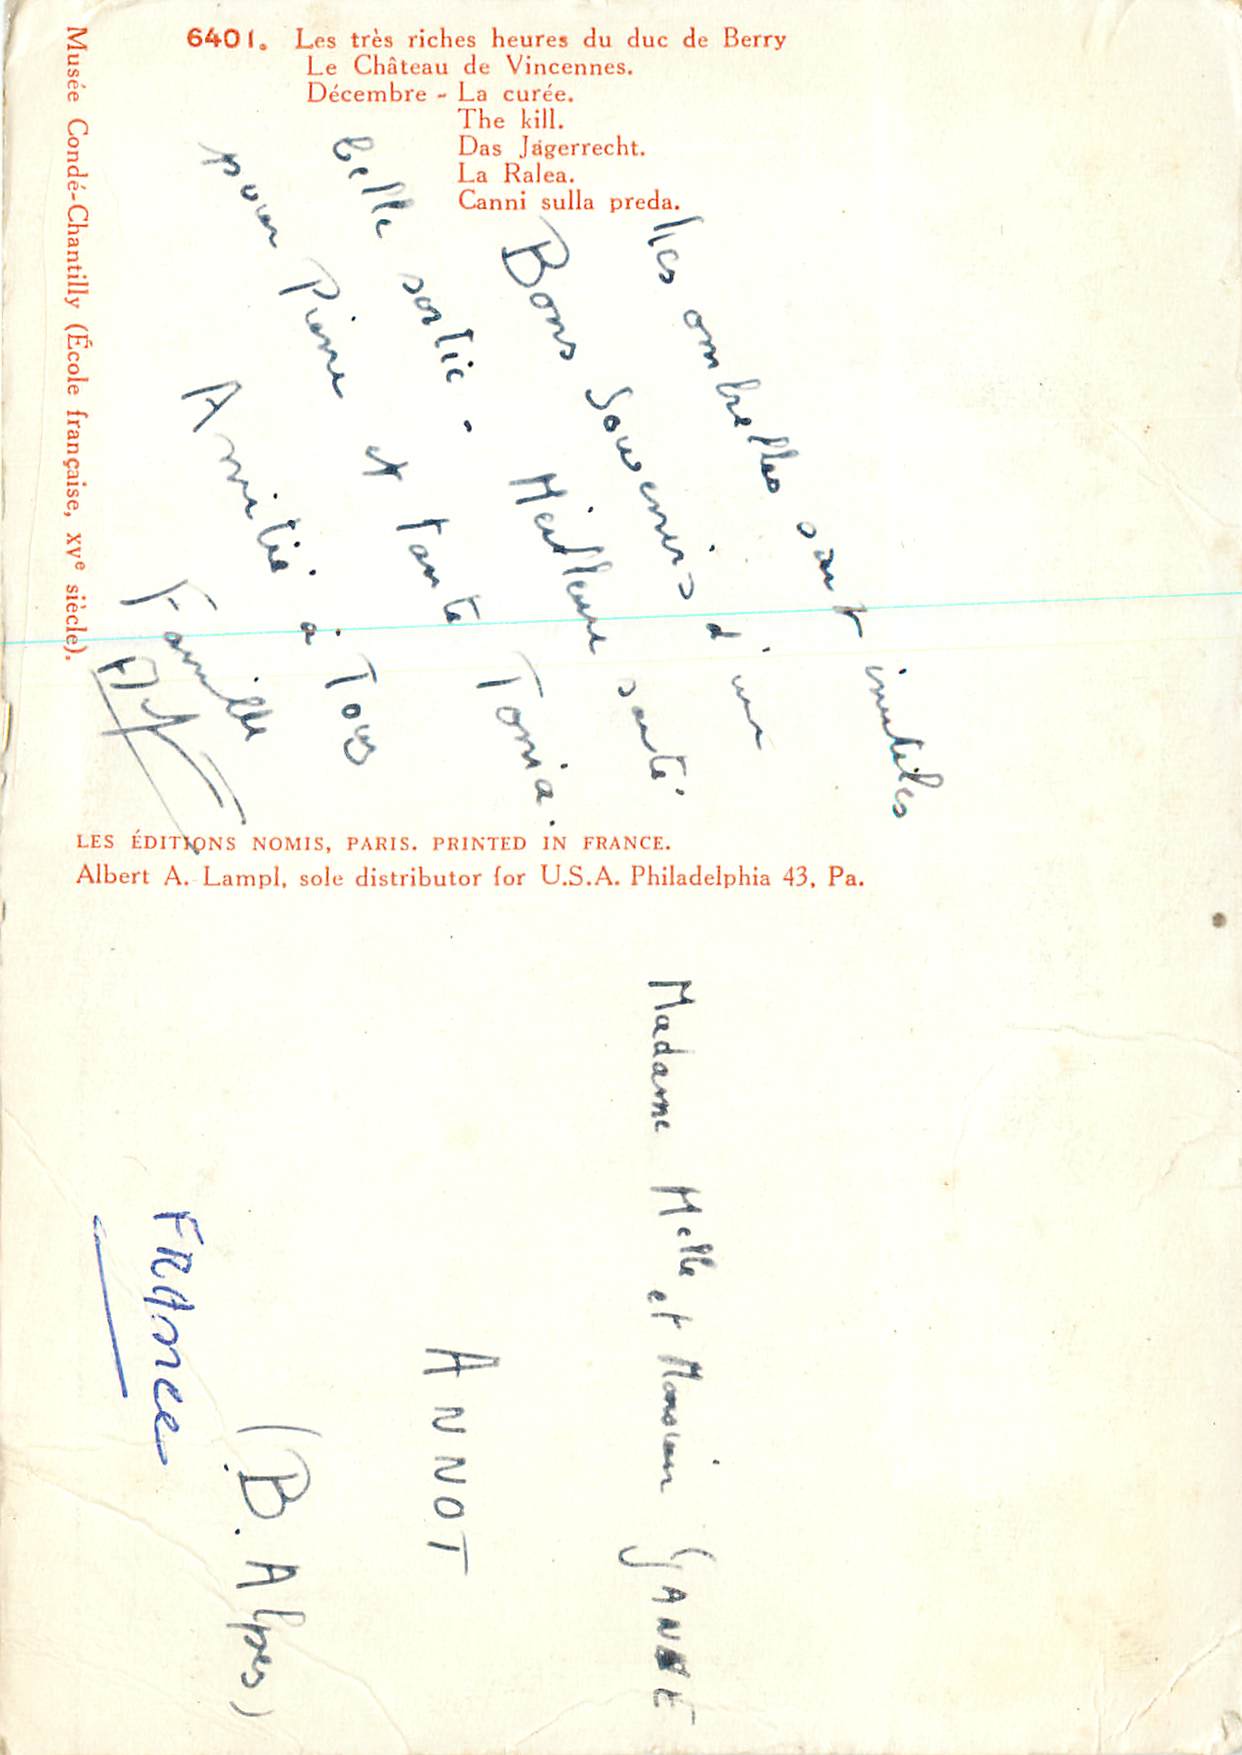 6401. Les très riches heures du duc de Berry
Le Château de Vincennes.
Décembre - La curée.
The kill.
Das Jägerrecht.
La Ralea.
Canni sulla preda.
Musée Condé-Chantilly (École française, XVe siècle).
les ombrelles sont inutiles
Bons Souvenirs d'une
belle sortie. Meilleure santé
pour Pierre et tante Tonia.
Amitié à Tous
Famille
LES ÉDITIONS NOMIS, PARIS. PRINTED IN FRANCE.
Albert A. Lampl, sole distributor for U.S.A. Philadelphia 43, Pa.
Madame Melle et Monsieur
ANNOT
(B. Alpes)
FRANCE